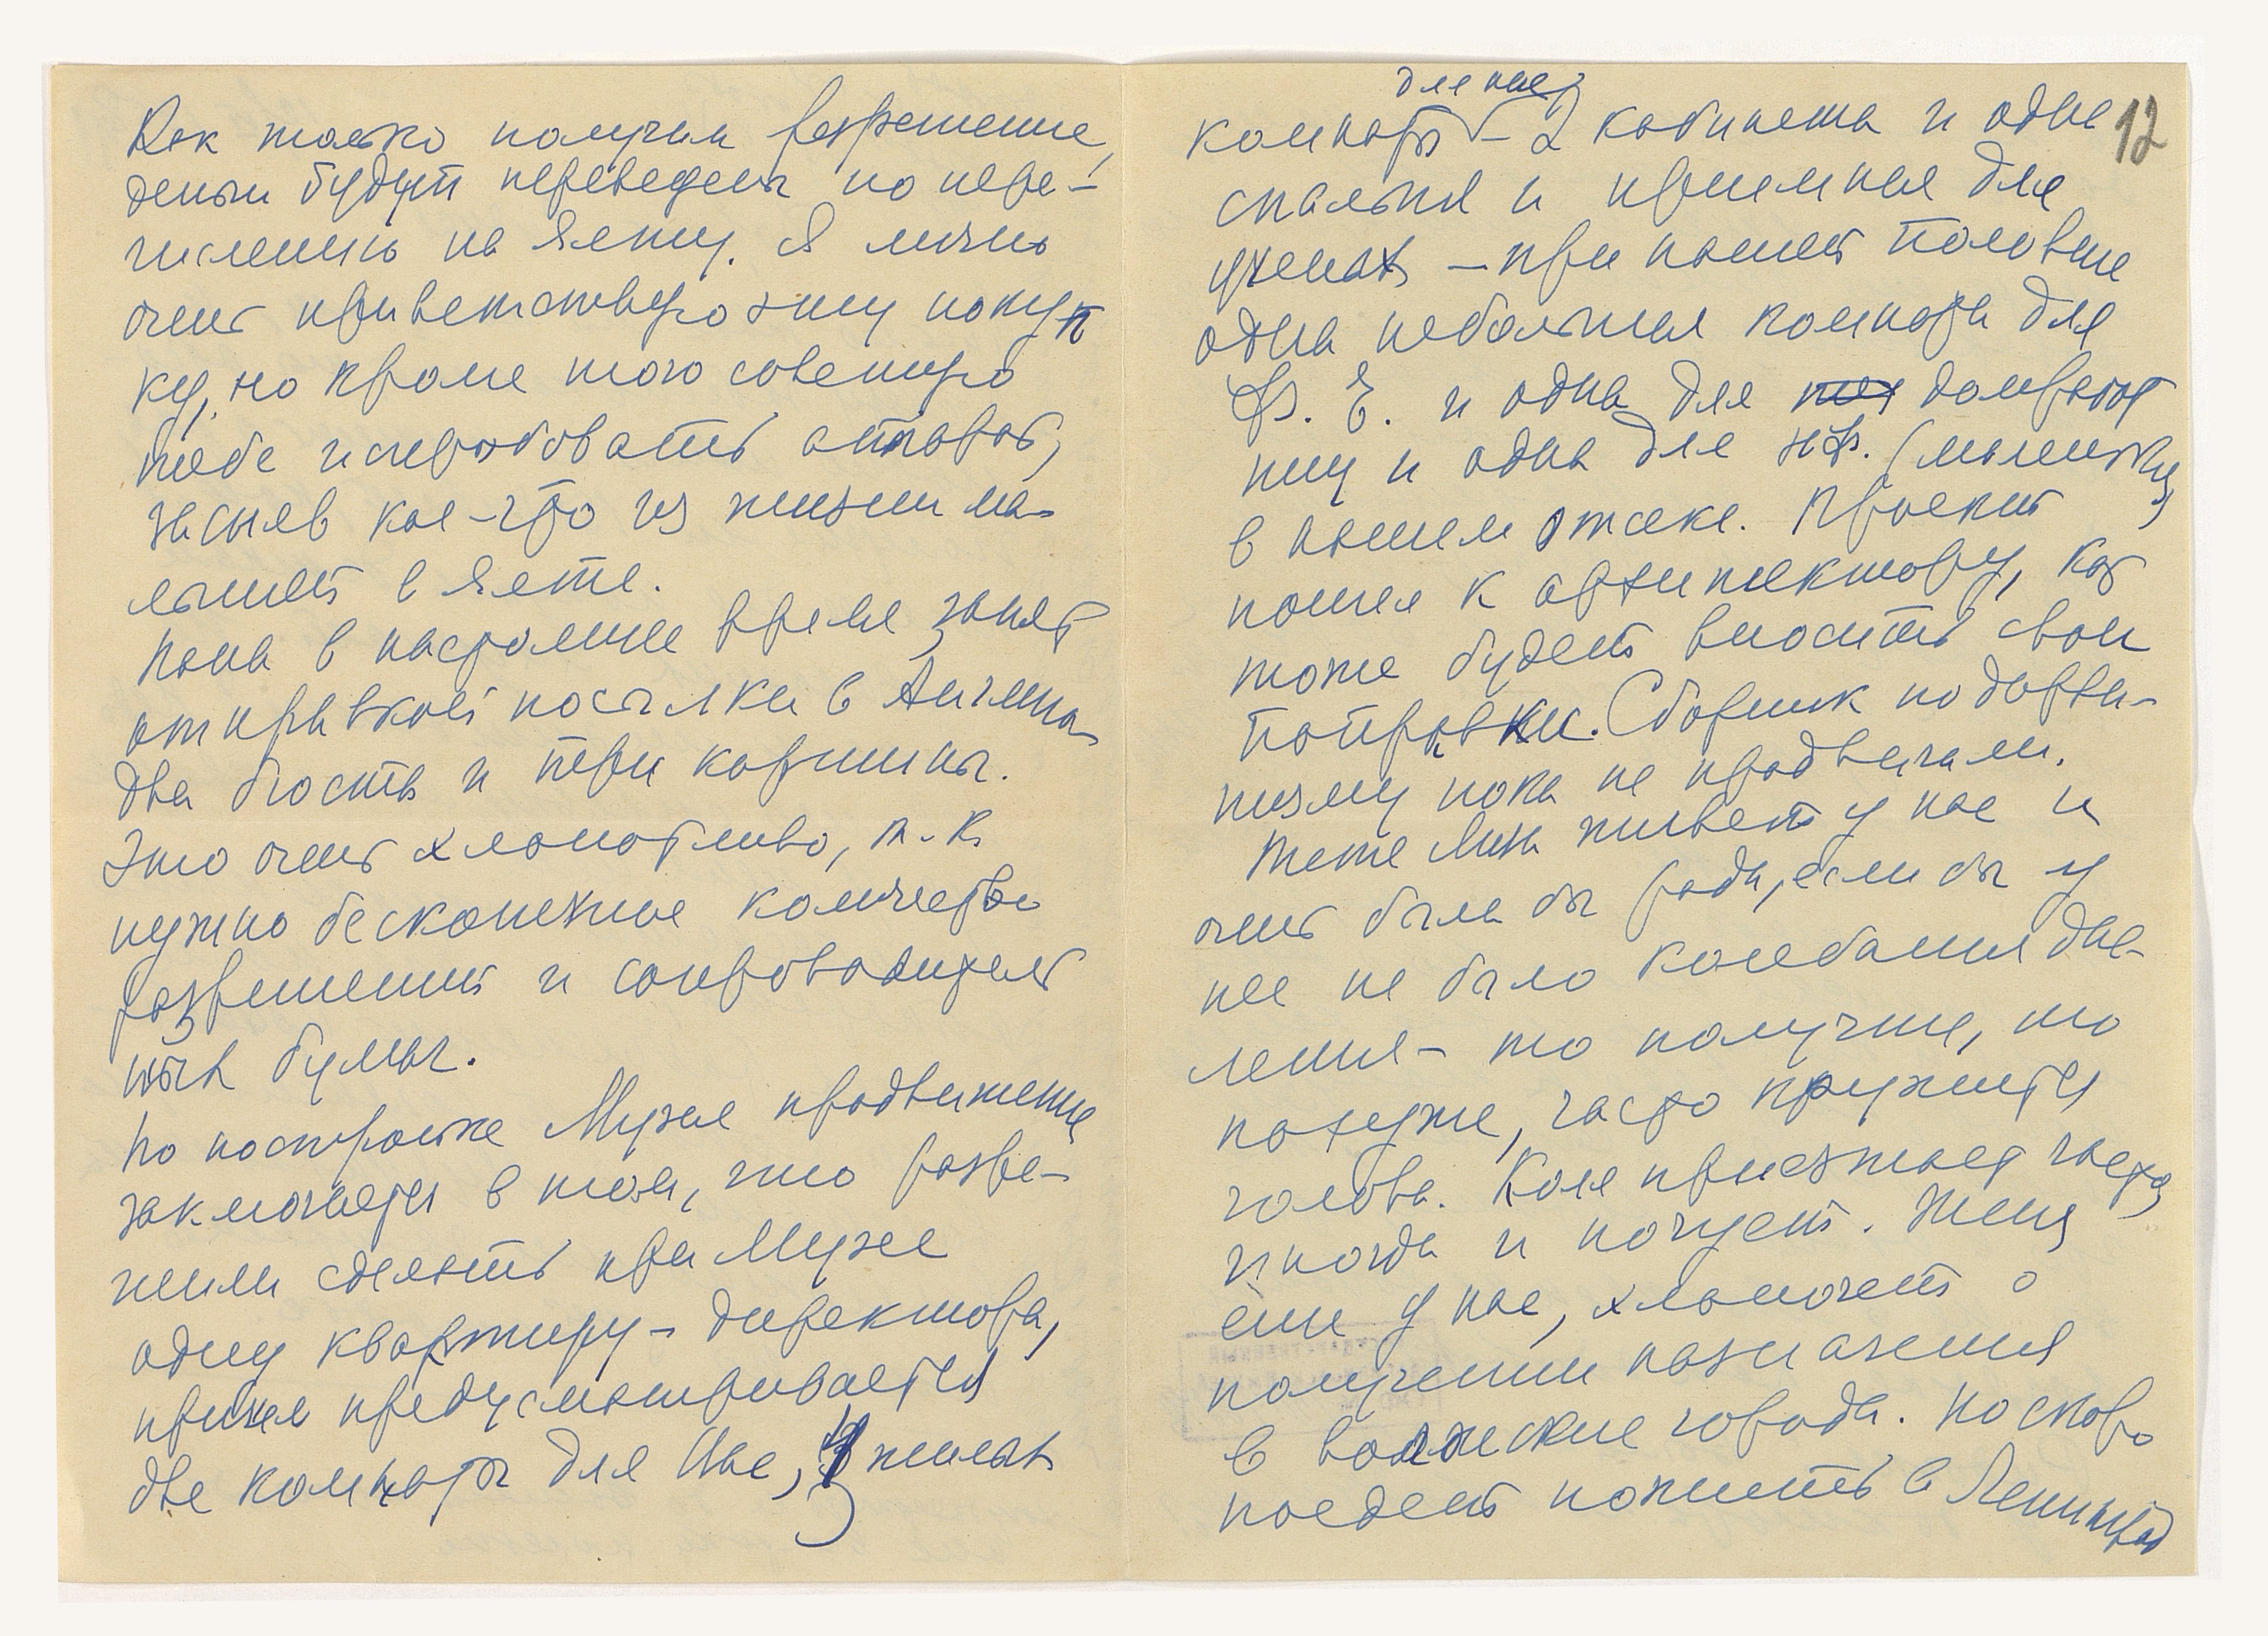 Как только получим разрешение,
деньги будут переведены по пере-
числению на Ялту. Я лично
очень приветствую эту покуп
ку, но кроме того советую
тебе испробовать аппарат,
засняв кое-что из жизни ма-
лышей в Ялте.
Папа в настоящее время занят
отправкой посылки в Англию
два бюста и три картины.
Это очень хлопотливо, т.к.
нужно бесконечное количество
разрешений и сопроводитель
ных бумаг.
По постройке Музея продвижение
заключается в том, что разре-
шили сделать при Музее
одну квартиру – директора,
причем предусматривается
две комнаты для Вас, 3 жилых
для нас
комнаты – 2 кабинета и одна
12
спальня и приемная для
ученых – при нашей половине
одна небольшая комната для
Ф. Е. и одна для домработ
ницы и одна для НФ. (маленькая)
в нашем этаже. Проект
пошел к архитектору, кот
тоже будет вносить свои
поправки. Сборник по дарви-
низму пока не продвигали.
Тетя Лиза живет у нас и
очень была бы рада, если бы у
нее не было колебания дав-
ления – то получше, то
похуже, часто кружится
голова. Коля приезжает часто
иногда и ночует. Женя
еще у нас, хлопочет о
получении назначения
в волжские города. Но скоро
поедет пожить в Ленинград